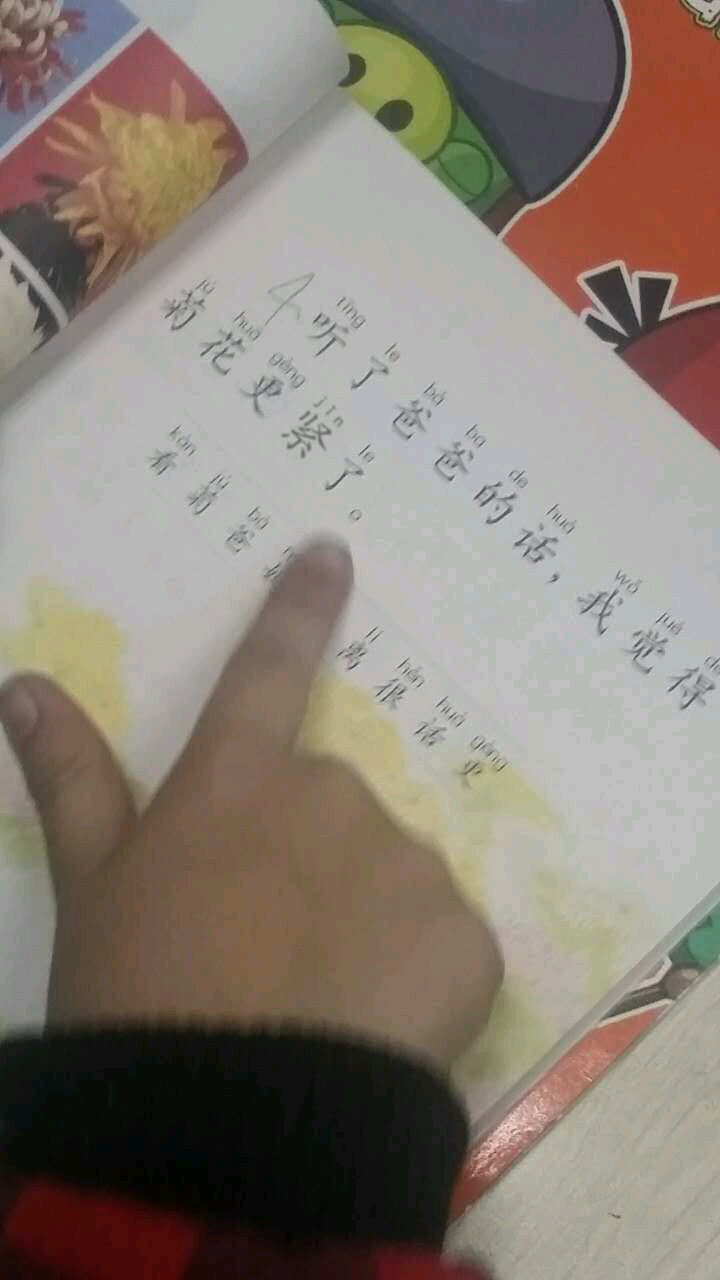 tīng le bà ba de huà wǒ jué de
4 听了爸爸的话,我觉得
jú huā gèng jǐn le
菊花更紧了。
kàn jú bà lí hěn huà gèng
看菊爸 离很话更